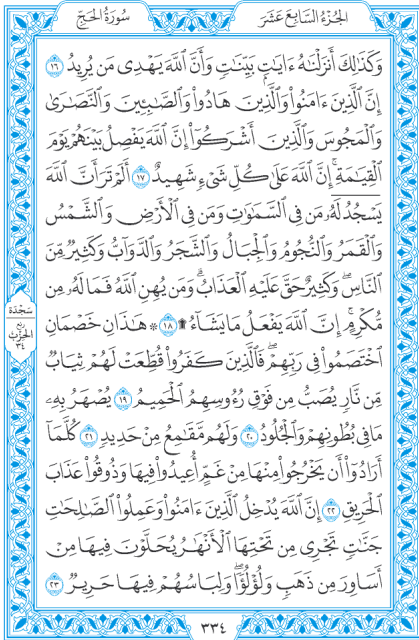 الجُزْءُ السَّابِعَ عَشَرَ
سُورَةُ الحَجِّ
وَكَذَٰلِكَ أَنزَلْنَٰهُ ءَايَٰتٍۭ بَيِّنَٰتٍ وَأَنَّ ٱللَّهَ يَهْدِى مَن يُرِيدُ ١٦
إِنَّ ٱلَّذِينَ ءَامَنُوا۟ وَٱلَّذِينَ هَادُوا۟ وَٱلصَّٰبِـِٔينَ وَٱلنَّصَٰرَىٰ
وَٱلْمَجُوسَ وَٱلَّذِينَ أَشْرَكُوٓا۟ إِنَّ ٱللَّهَ يَفْصِلُ بَيْنَهُمْ يَوْمَ
ٱلْقِيَٰمَةِ ۚ إِنَّ ٱللَّهَ عَلَىٰ كُلِّ شَىْءٍ شَهِيدٌ ١٧ أَلَمْ تَرَ أَنَّ ٱللَّهَ
يَسْجُدُ لَهُۥ مَن فِى ٱلسَّمَٰوَٰتِ وَمَن فِى ٱلْأَرْضِ وَٱلشَّمْسُ
وَٱلْقَمَرُ وَٱلنُّجُومُ وَٱلْجِبَالُ وَٱلشَّجَرُ وَٱلدَّوَآبُّ وَكَثِيرٌ مِّنَ
ٱلنَّاسِ ۖ وَكَثِيرٌ حَقَّ عَلَيْهِ ٱلْعَذَابُ ۗ وَمَن يُهِنِ ٱللَّهُ فَمَا لَهُۥ مِن
مُّكْرِمٍ ۚ إِنَّ ٱللَّهَ يَفْعَلُ مَا يَشَآءُ ۩ ١٨ ۞ هَٰذَانِ خَصْمَانِ
ٱخْتَصَمُوا۟ فِى رَبِّهِمْ ۖ فَٱلَّذِينَ كَفَرُوا۟ قُطِّعَتْ لَهُمْ ثِيَابٌ
مِّن نَّارٍ يُصَبُّ مِن فَوْقِ رُءُوسِهِمُ ٱلْحَمِيمُ ١٩ يُصْهَرُ بِهِۦ
مَا فِى بُطُونِهِمْ وَٱلْجُلُودُ ٢٠ وَلَهُم مَّقَٰمِعُ مِنْ حَدِيدٍ ٢١ كُلَّمَآ
أَرَادُوٓا۟ أَن يَخْرُجُوا۟ مِنْهَا مِنْ غَمٍّ أُعِيدُوا۟ فِيهَا وَذُوقُوا۟ عَذَابَ
ٱلْحَرِيقِ ٢٢ إِنَّ ٱللَّهَ يُدْخِلُ ٱلَّذِينَ ءَامَنُوا۟ وَعَمِلُوا۟ ٱلصَّٰلِحَٰتِ
جَنَّٰتٍ تَجْرِى مِن تَحْتِهَا ٱلْأَنْهَٰرُ يُحَلَّوْنَ فِيهَا مِنْ
أَسَاوِرَ مِن ذَهَبٍ وَلُؤْلُؤًا ۖ وَلِبَاسُهُمْ فِيهَا حَرِيرٌ ٢٣
سَجْدَة
ربع
الحِزْب
٣٤
٣٣٤